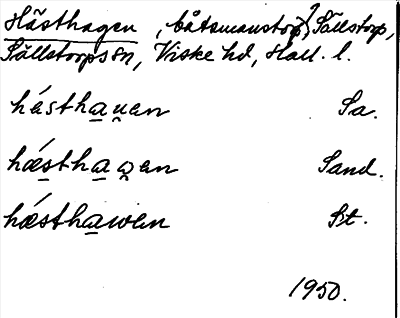 Hästhagen, båtsmanstorp?, Sällstorp,
Sällstorps sn, Viske hd, Hall. l.
hǽstha̲u̯en Sa.
hǽs̲tha̲ꞷ̯en Sand.
hǽstha̲wen St.
1950.